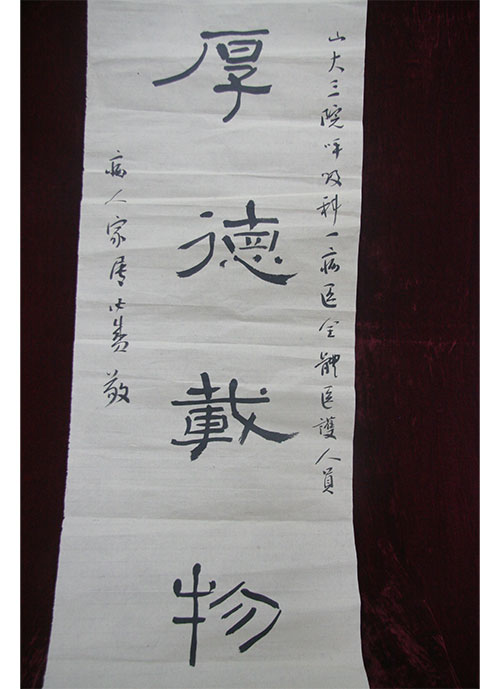 山大三院呼吸科一病区全體医護人員
厚德載物
病人家属敬